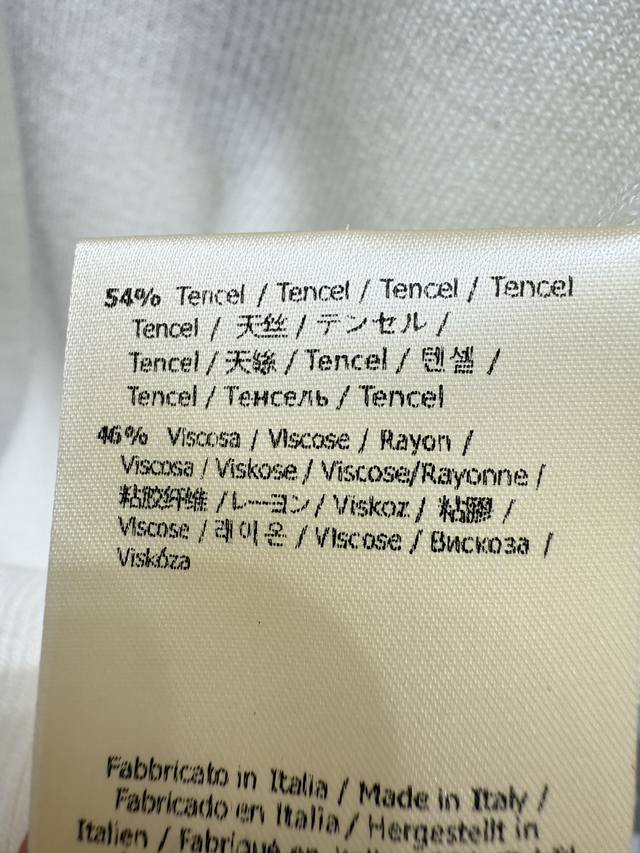 54% Tencel / Tencel / Tencel / Tencel
Tencel / 天丝 / テンセル /
Tencel / 天絲 / Tencel / 텐셀 /
Tencel / Тенсель / Tencel
46% Viscosa / Viscose / Rayon /
Viscosa / Viskose / Viscose/Rayonne /
粘胶纤维 / レーヨン / Viskoz / 粘膠 /
Viscose / 레이온 / Viscose / Вискоза /
Viskóza
Fabbricato in Italia / Made in Italy /
Fabricado en Italia / Hergestellt in
Italien / Fabriqué en